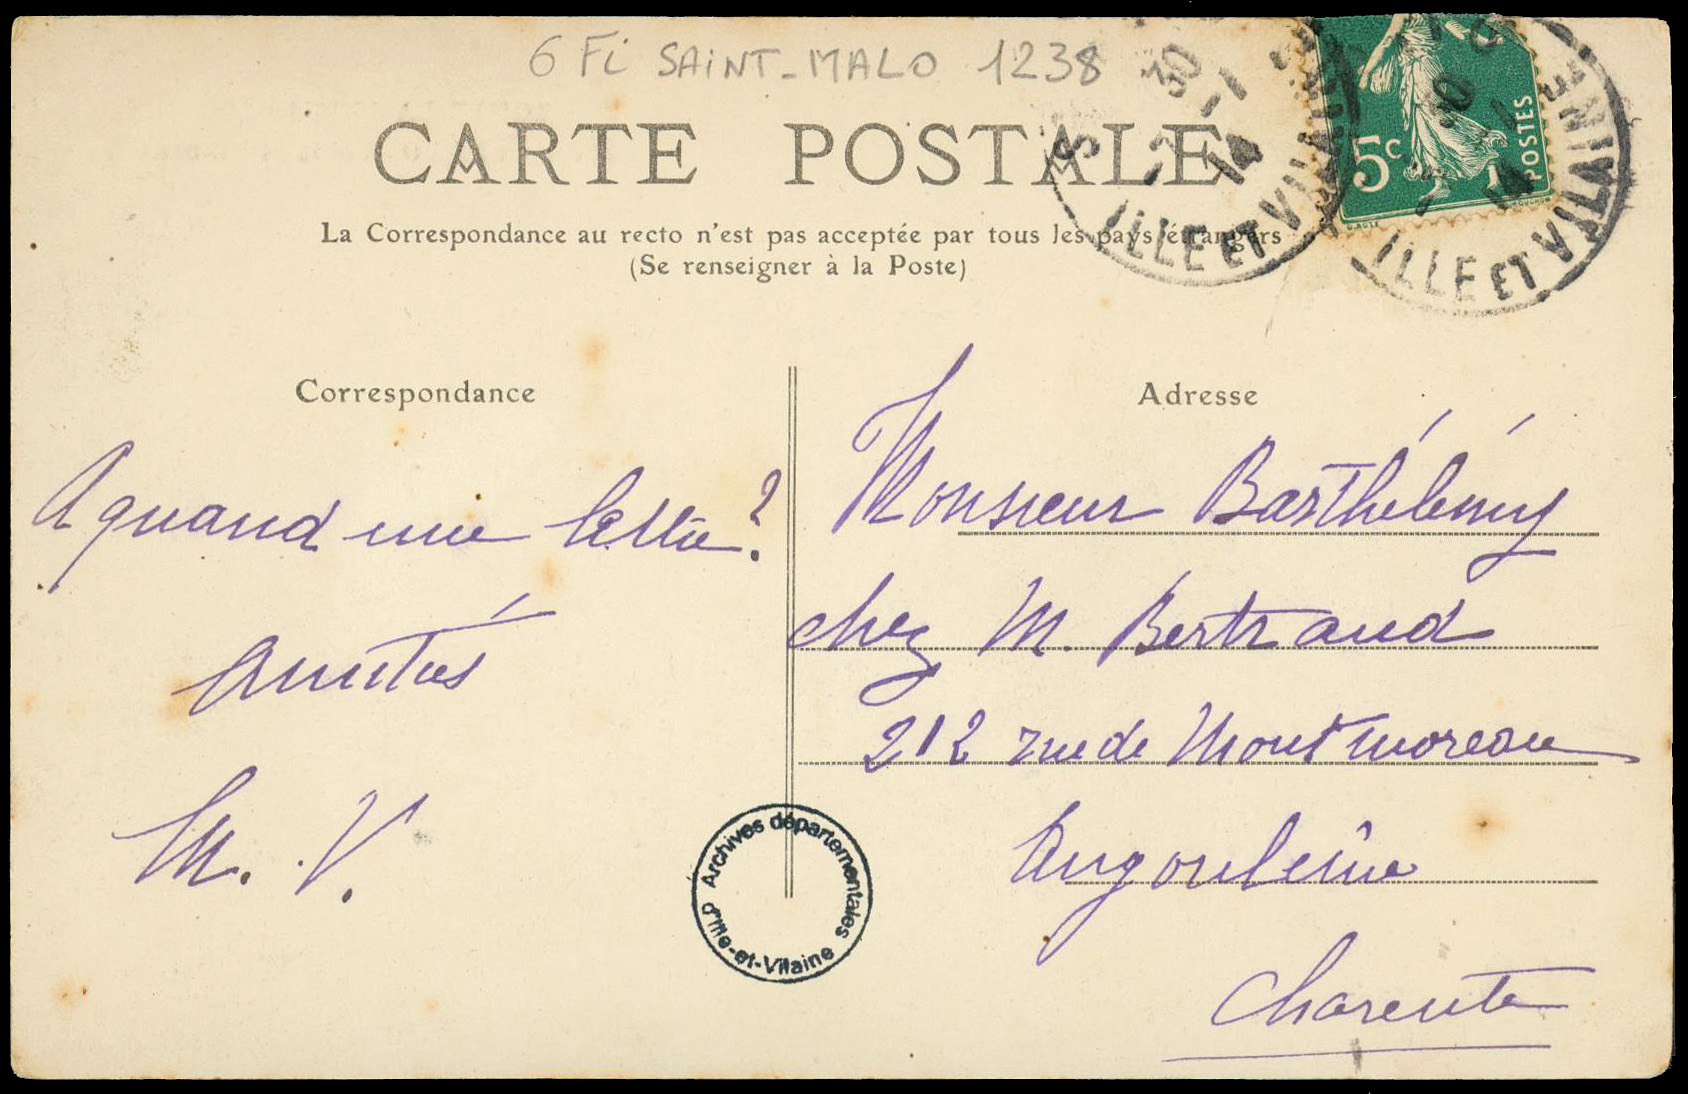 6 Fi SAINT-MALO 1238
CARTE POSTALE
La Correspondance au recto n'est pas acceptée par tous les pays étrangers
(Se renseigner à la Poste)
30
-1
14
ILLE ET VILAINE
5c
POSTES
14
ILLE ET VILAINE
Correspondance
A quand une lettre?
Amitiés
M. V.
Adresse
Monsieur Barthélémy
chez M. Bertrand
212 rue de Montmoreau
Angoulême
Charente
Archives départementales
d'Ille-et-Vilaine